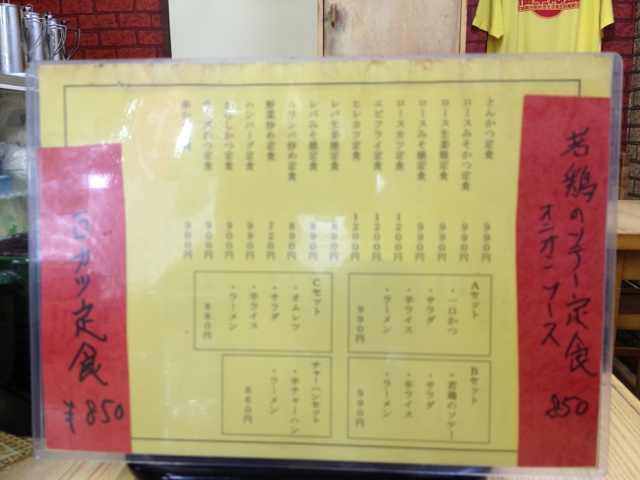 若鶏のソテー定食
オニオンソース
850
とんかつ定食 990円
ロースみそかつ定食 990円
ロース生姜焼定食 990円
ロースみそ焼定食 990円
ロースカツ定食 1200円
エビフライ定食 1200円
ヒレカツ定食 1200円
レバ生姜焼定食 890円
レバみそ焼定食 890円
ニラレバ炒め定食 890円
野菜炒め定食 720円
ハンバーグ定食 990円
定食 900円
定食 900円
900円
Aセット
・一口かつ
・サラダ
・半ライス
・ラーメン
990円
Bセット
・若鶏のソテー
・サラダ
・半ライス
・ラーメン
990円
Cセット
・オムレツ
・サラダ
・半ライス
・ラーメン
880円
チャーハンセット
・半チャーハン
・ラーメン
860円
カツ定食
¥850